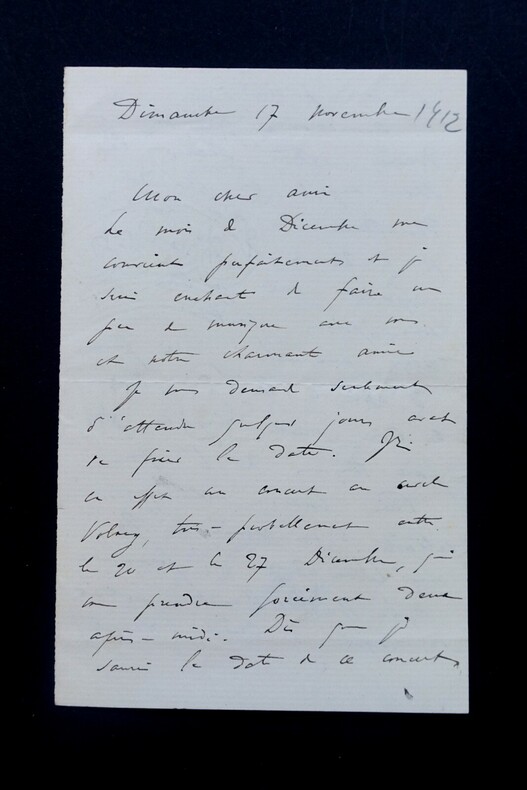 Dimanche 17 novembre 1912
Mon cher ami
Le mois de Décembre me
convient parfaitement et je
suis enchanté de faire un
peu de musique avec vous
et notre charmant amie
Je vous demande seulement
d'attendre quelques jours avant
de fixer la date. J'ai
en effet un concert au cercle
Volney, très-probablement entre
le 20 et le 27 Décembre, qui
me prendra forcément deux
après-midi. Dès que je
saurai la date de ce concert,